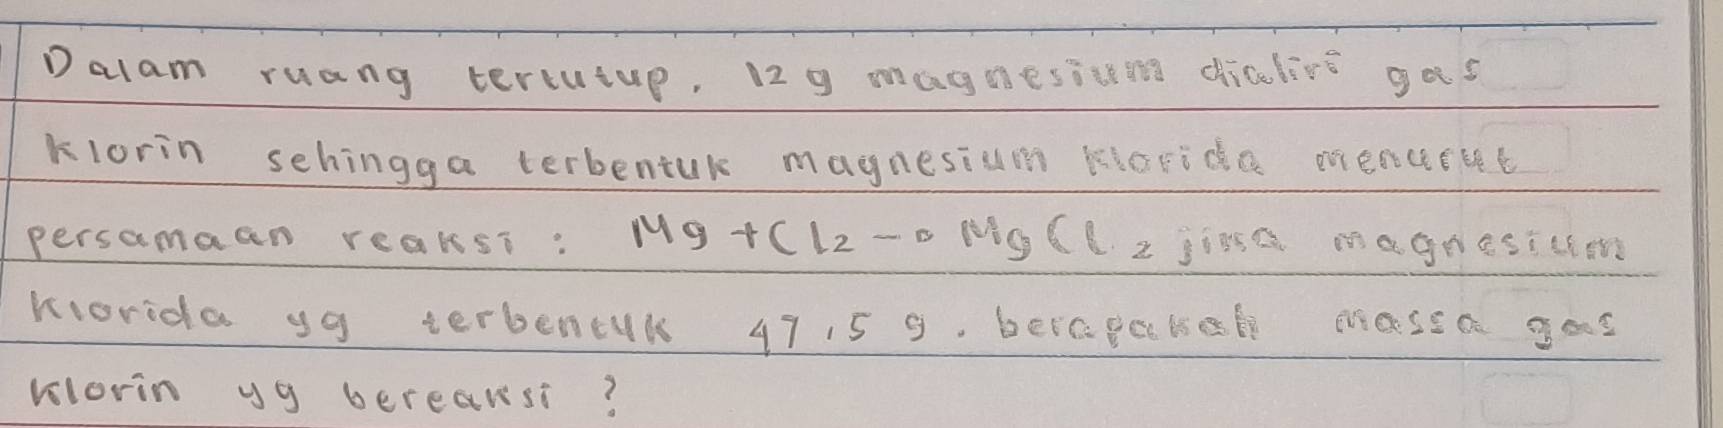 Dalam ruang tertutup, 12 g magnesium dialiri gas
klorin sehingga terbentuk magnesium klorida menurut
persamaan reaksi : Mg + Cl2 → MgCl2 jika magnesium
klorida yg terbentuk 47,5 g. berapakah massa gas
klorin yg bereaksi ?